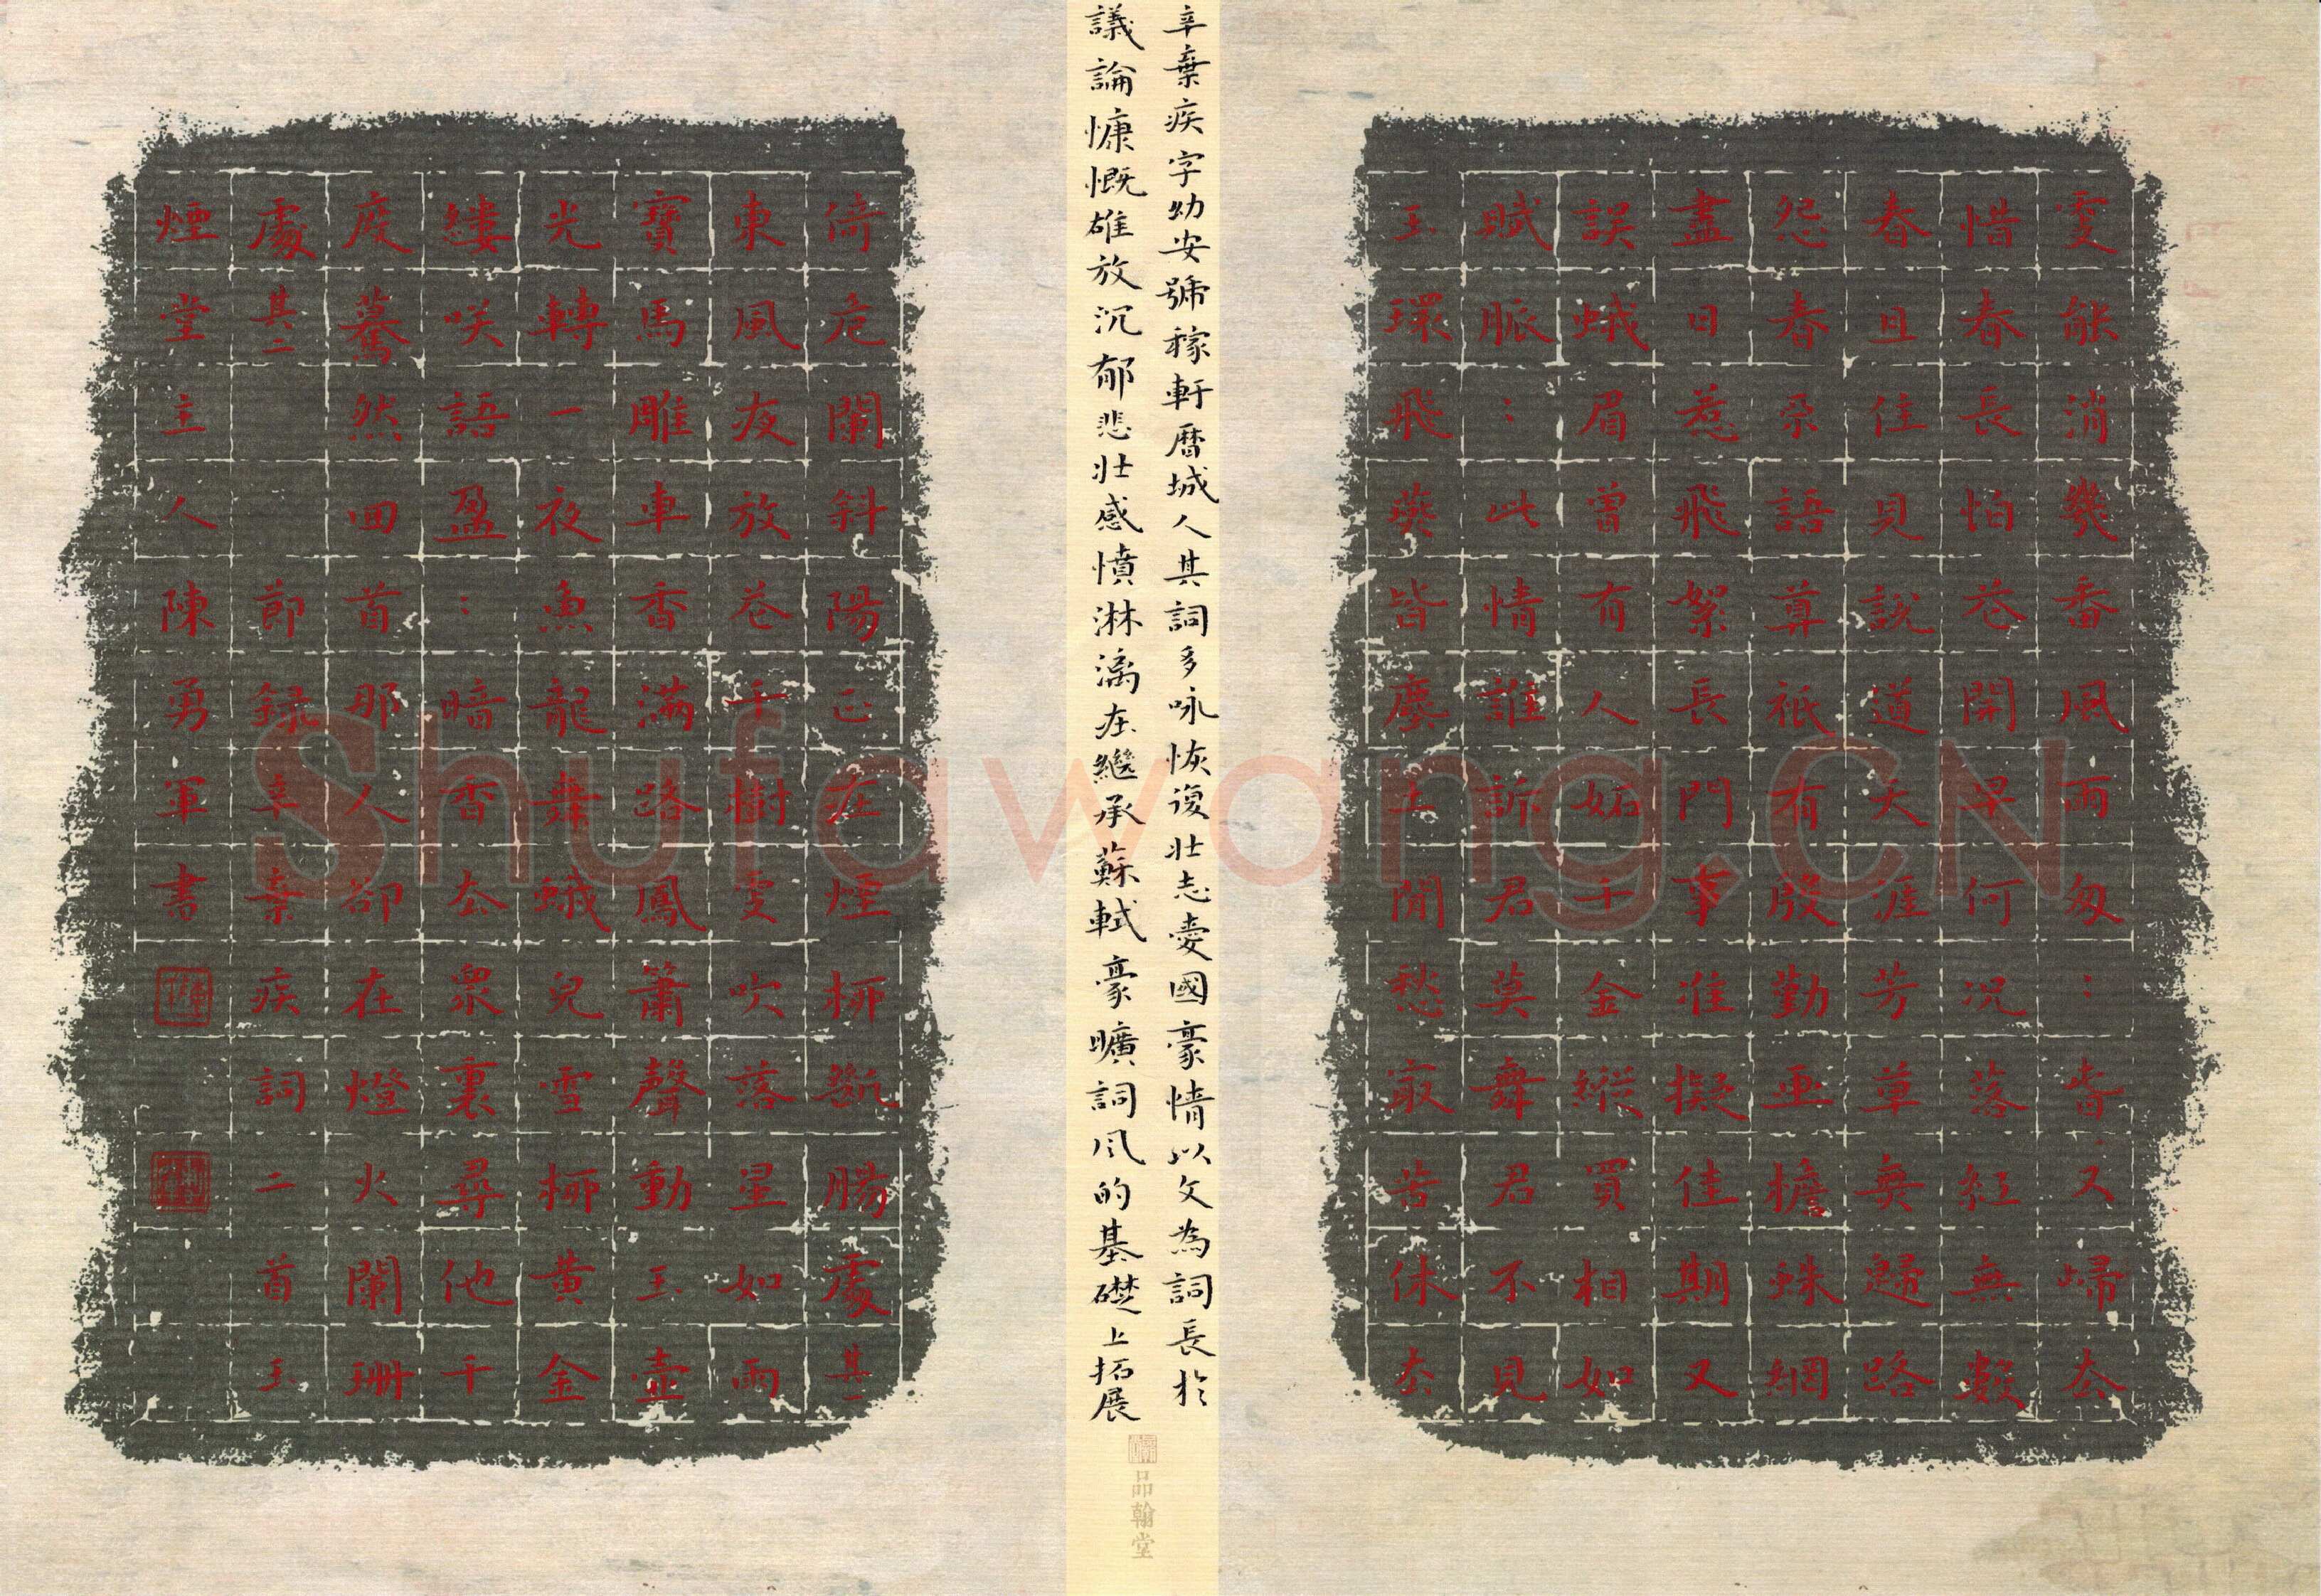 更能消幾番風雨匆:皆又歸去
惜春長怕花開早何況落紅無數
春且住見說道天涯芳草無歸路
怨春不語算祇有殷勤畫檐蛛網
盡日惹飛絮長門事准擬佳期又
誤蛾眉曾有人妒千金縱買相如
賦脈:此情誰訴君莫舞君不見
玉環飛燕皆塵土閒愁最苦休去
辛棄疾字幼安號稼軒曆城人其詞多咏恢復壯志愛國豪情以文為詞長於
議論慷慨雄放沉郁悲壯感憤淋漓在繼承蘇軾豪曠詞風的基礎上拓展
品翰堂
倚危闌斜陽正在煙柳斷腸處其一
東風夜放花千樹更吹落星如雨
寶馬雕車香滿路鳳簫聲動玉壺
光轉一夜魚龍舞蛾兒雪柳黃金
縷咲語盈:暗香去衆裏尋他千
度驀然回首那人卻在燈火闌珊
處其二 節錄辛棄疾詞二首玉
煙堂主人陳勇軍書
Shufawang.CN